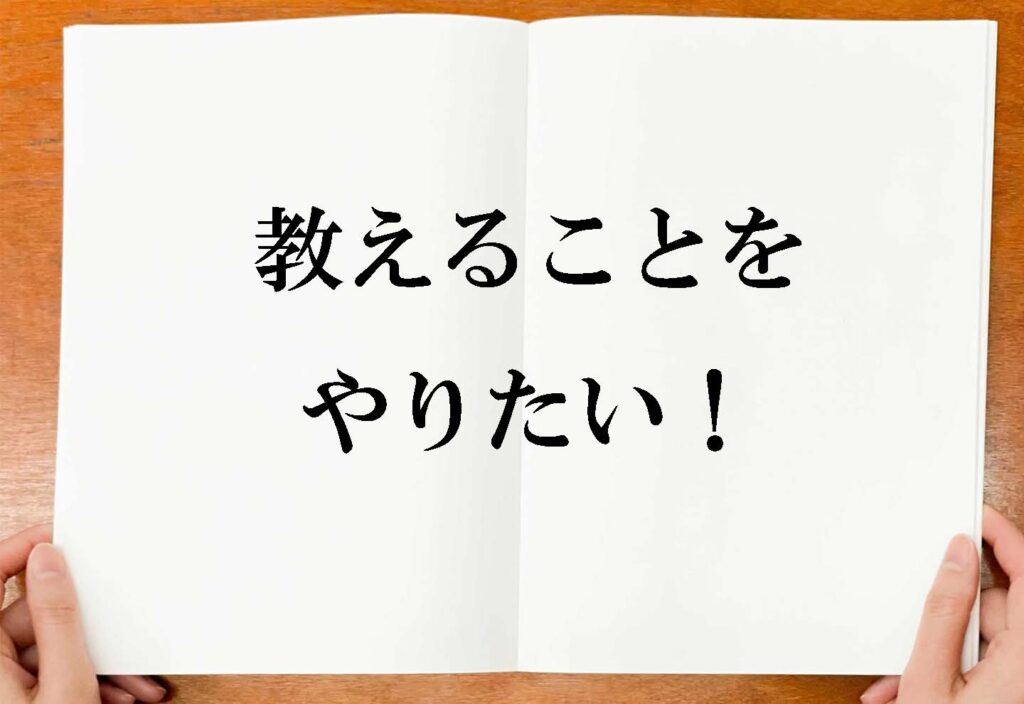 教えることを
やりたい！